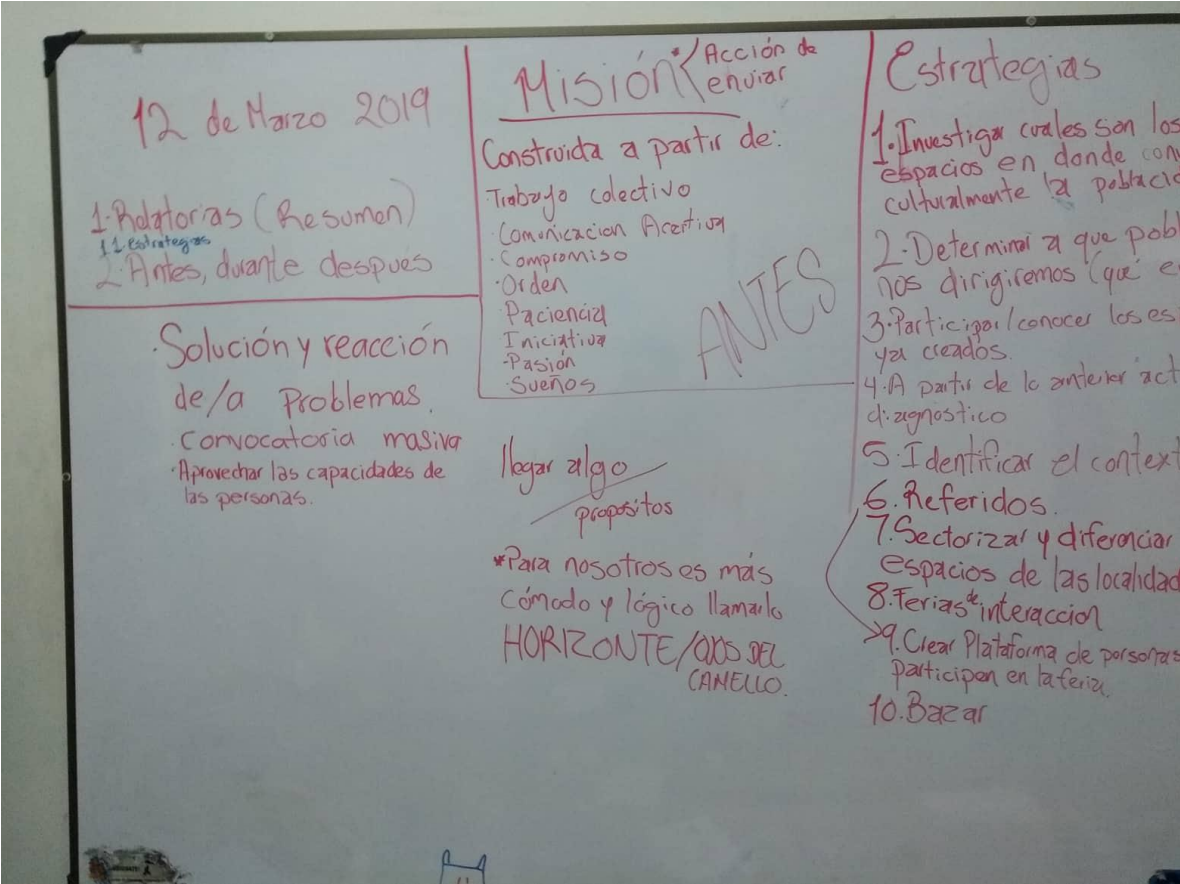 12 de Marzo 2019
1. Relatorias (Resumen)
1.1 estrategias
2. Antes, durante despues
· Solución y reacción
de/a Problemas.
· Convocatoria masiva
· Aprovechar las capacidades de
las personas.
Misión * Acción de
enviar
Construida a partir de:
· Trabajo colectivo
· Comunicacion Acertiva
· Compromiso
· Orden
Paciencia
Iniciativa
· Pasión
· Sueños
ANTES
llegar algo
propositos
*Para nosotros es más
cómodo y lógico llamarlo
HORIZONTE/OJOS DEL
CAMELLO.
Estrategias
1. Investigar cuales son los
espacios en donde con
culturalmente la poblacio
2. Determinar a que pobl
nos dirigiremos (que e
3. Participar/conocer los es
ya creados.
4. A partir de lo anterior act
diagnostico
5. Identificar el context
6. Referidos.
7. Sectorizar y diferenciar
espacios de las localidad
8. Ferias de interaccion
9. Crear Plataforma de personas
participen en la feria.
10. Bazar